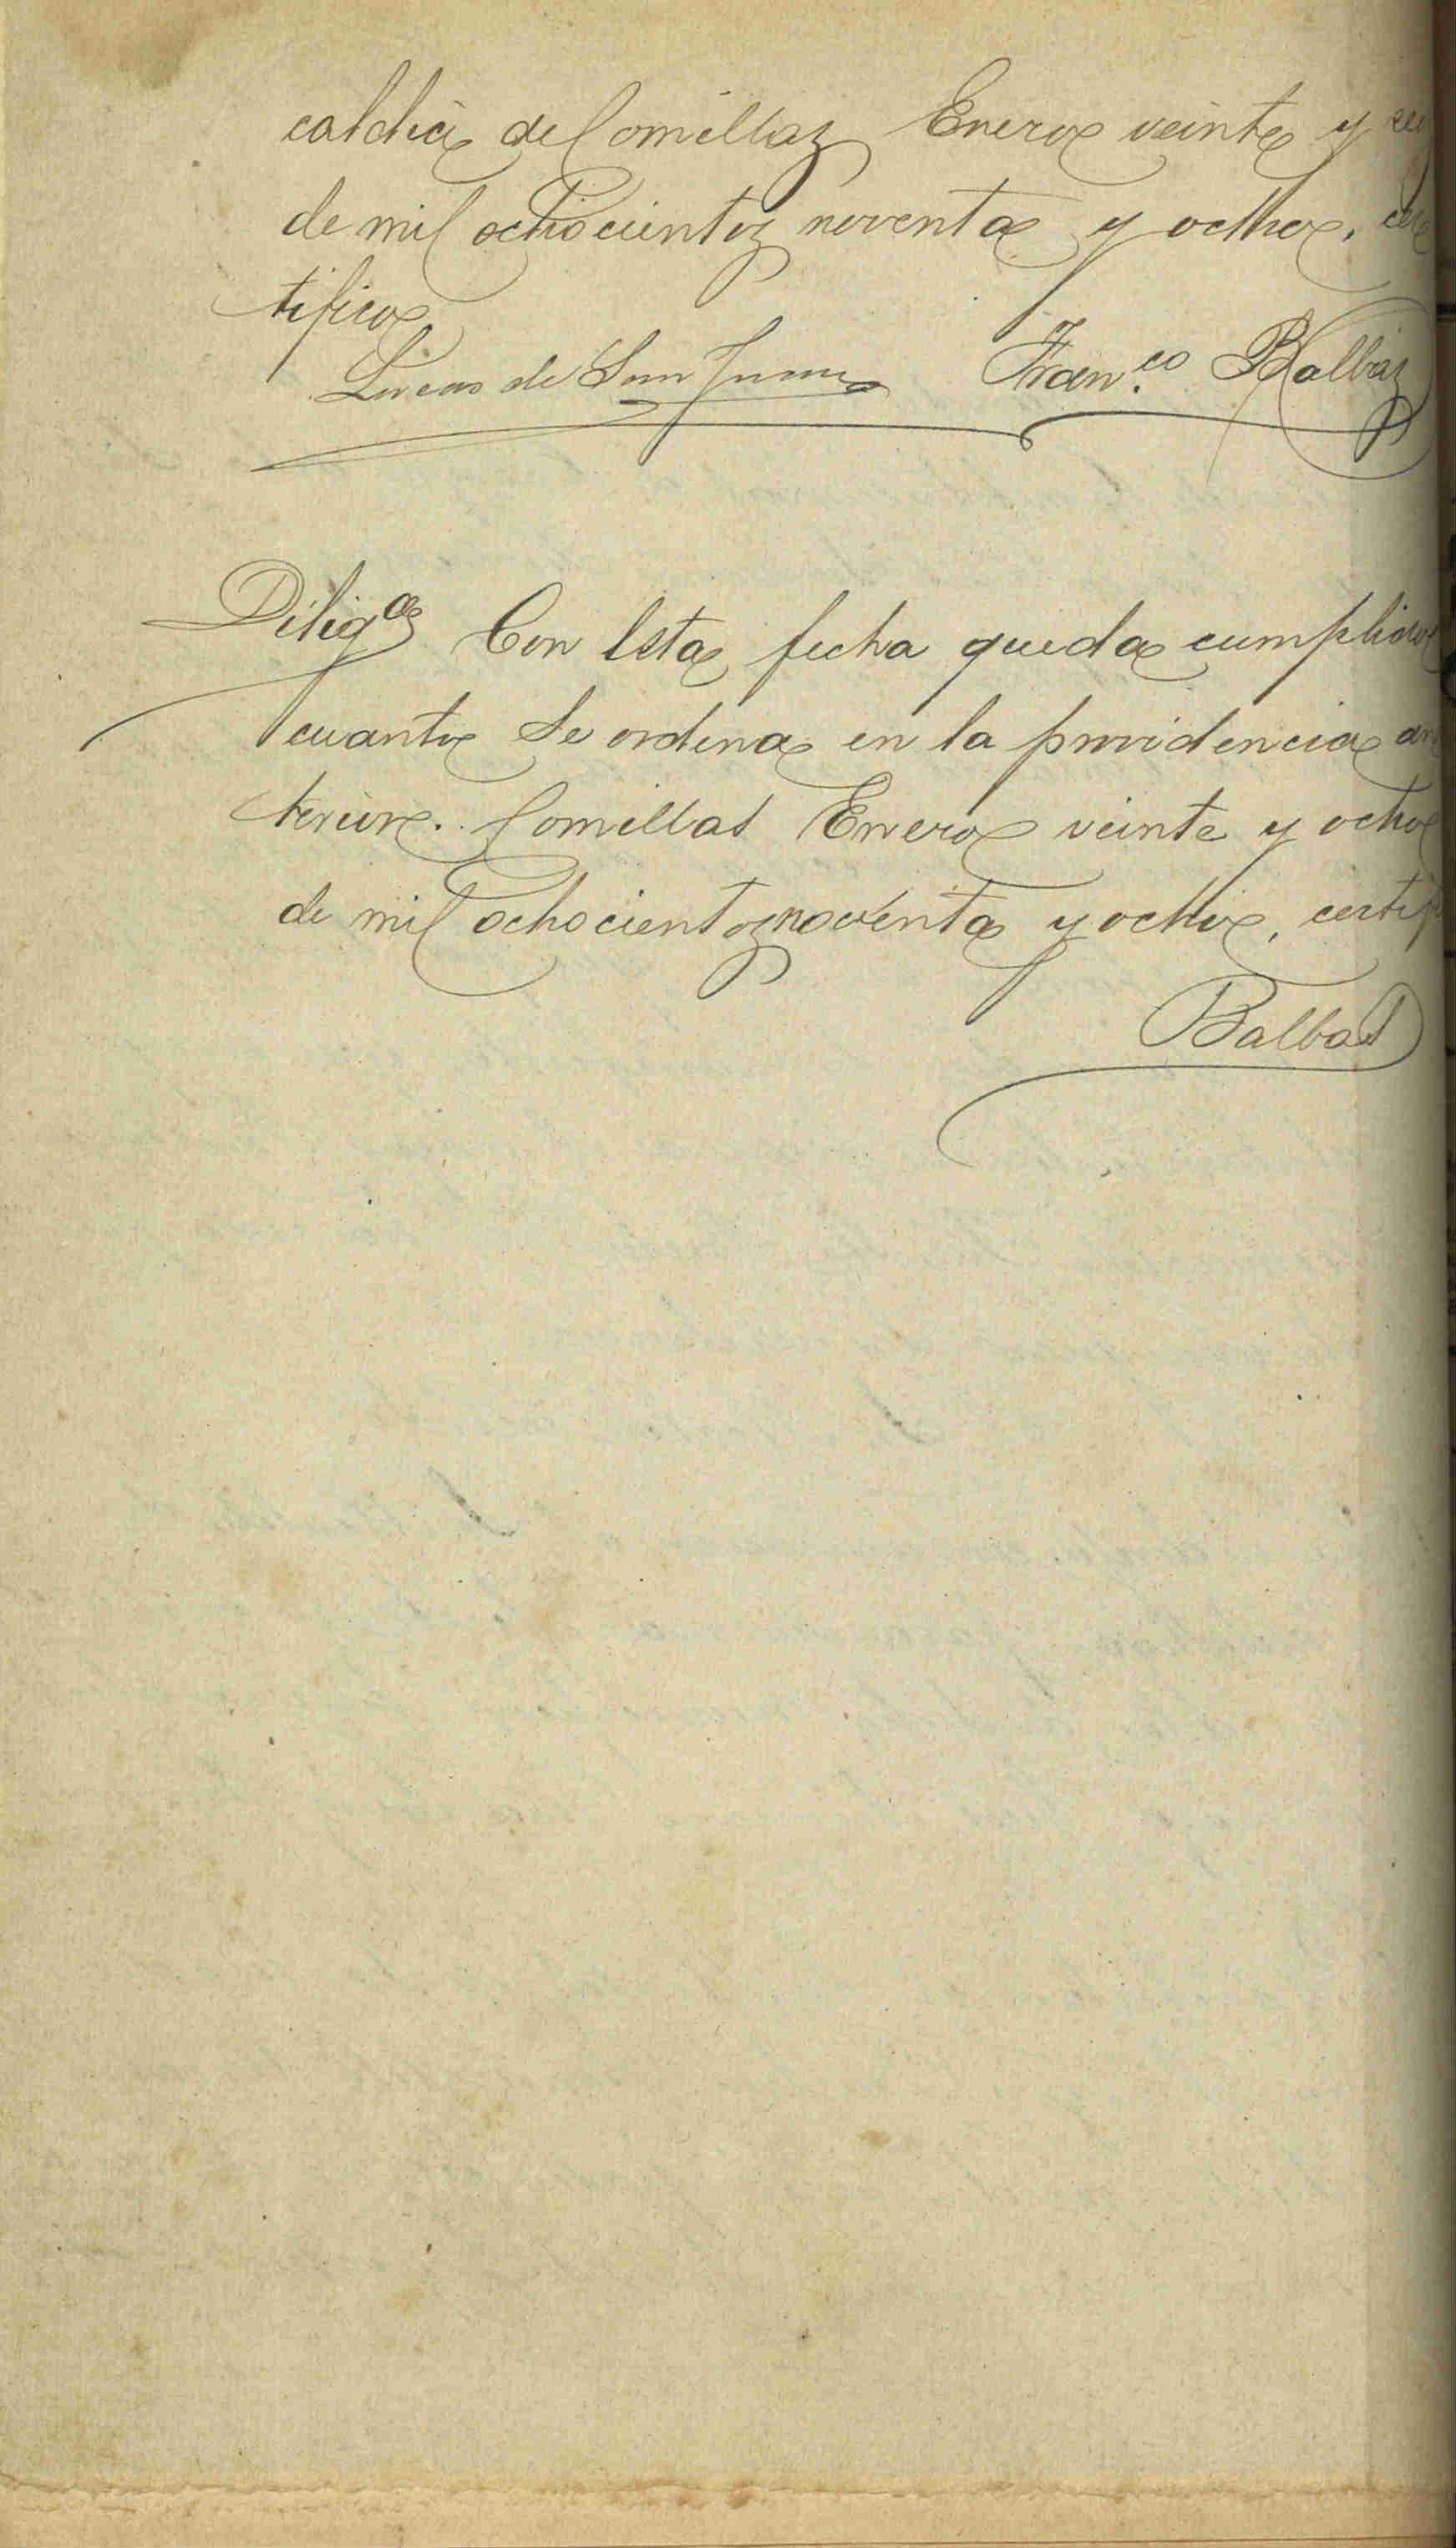 caldia de Comillas Enero veinte y
de mil ochocientos noventa y ocho, cer
tifico
Lucas de San Juan Fran.co Balbas
Diliga Con esta fecha queda cumplido
cuanto se ordena en la providencia an
terior. Comillas Enero veinte y ocho
de mil ochocientos noventa y ocho, certif
Balbas